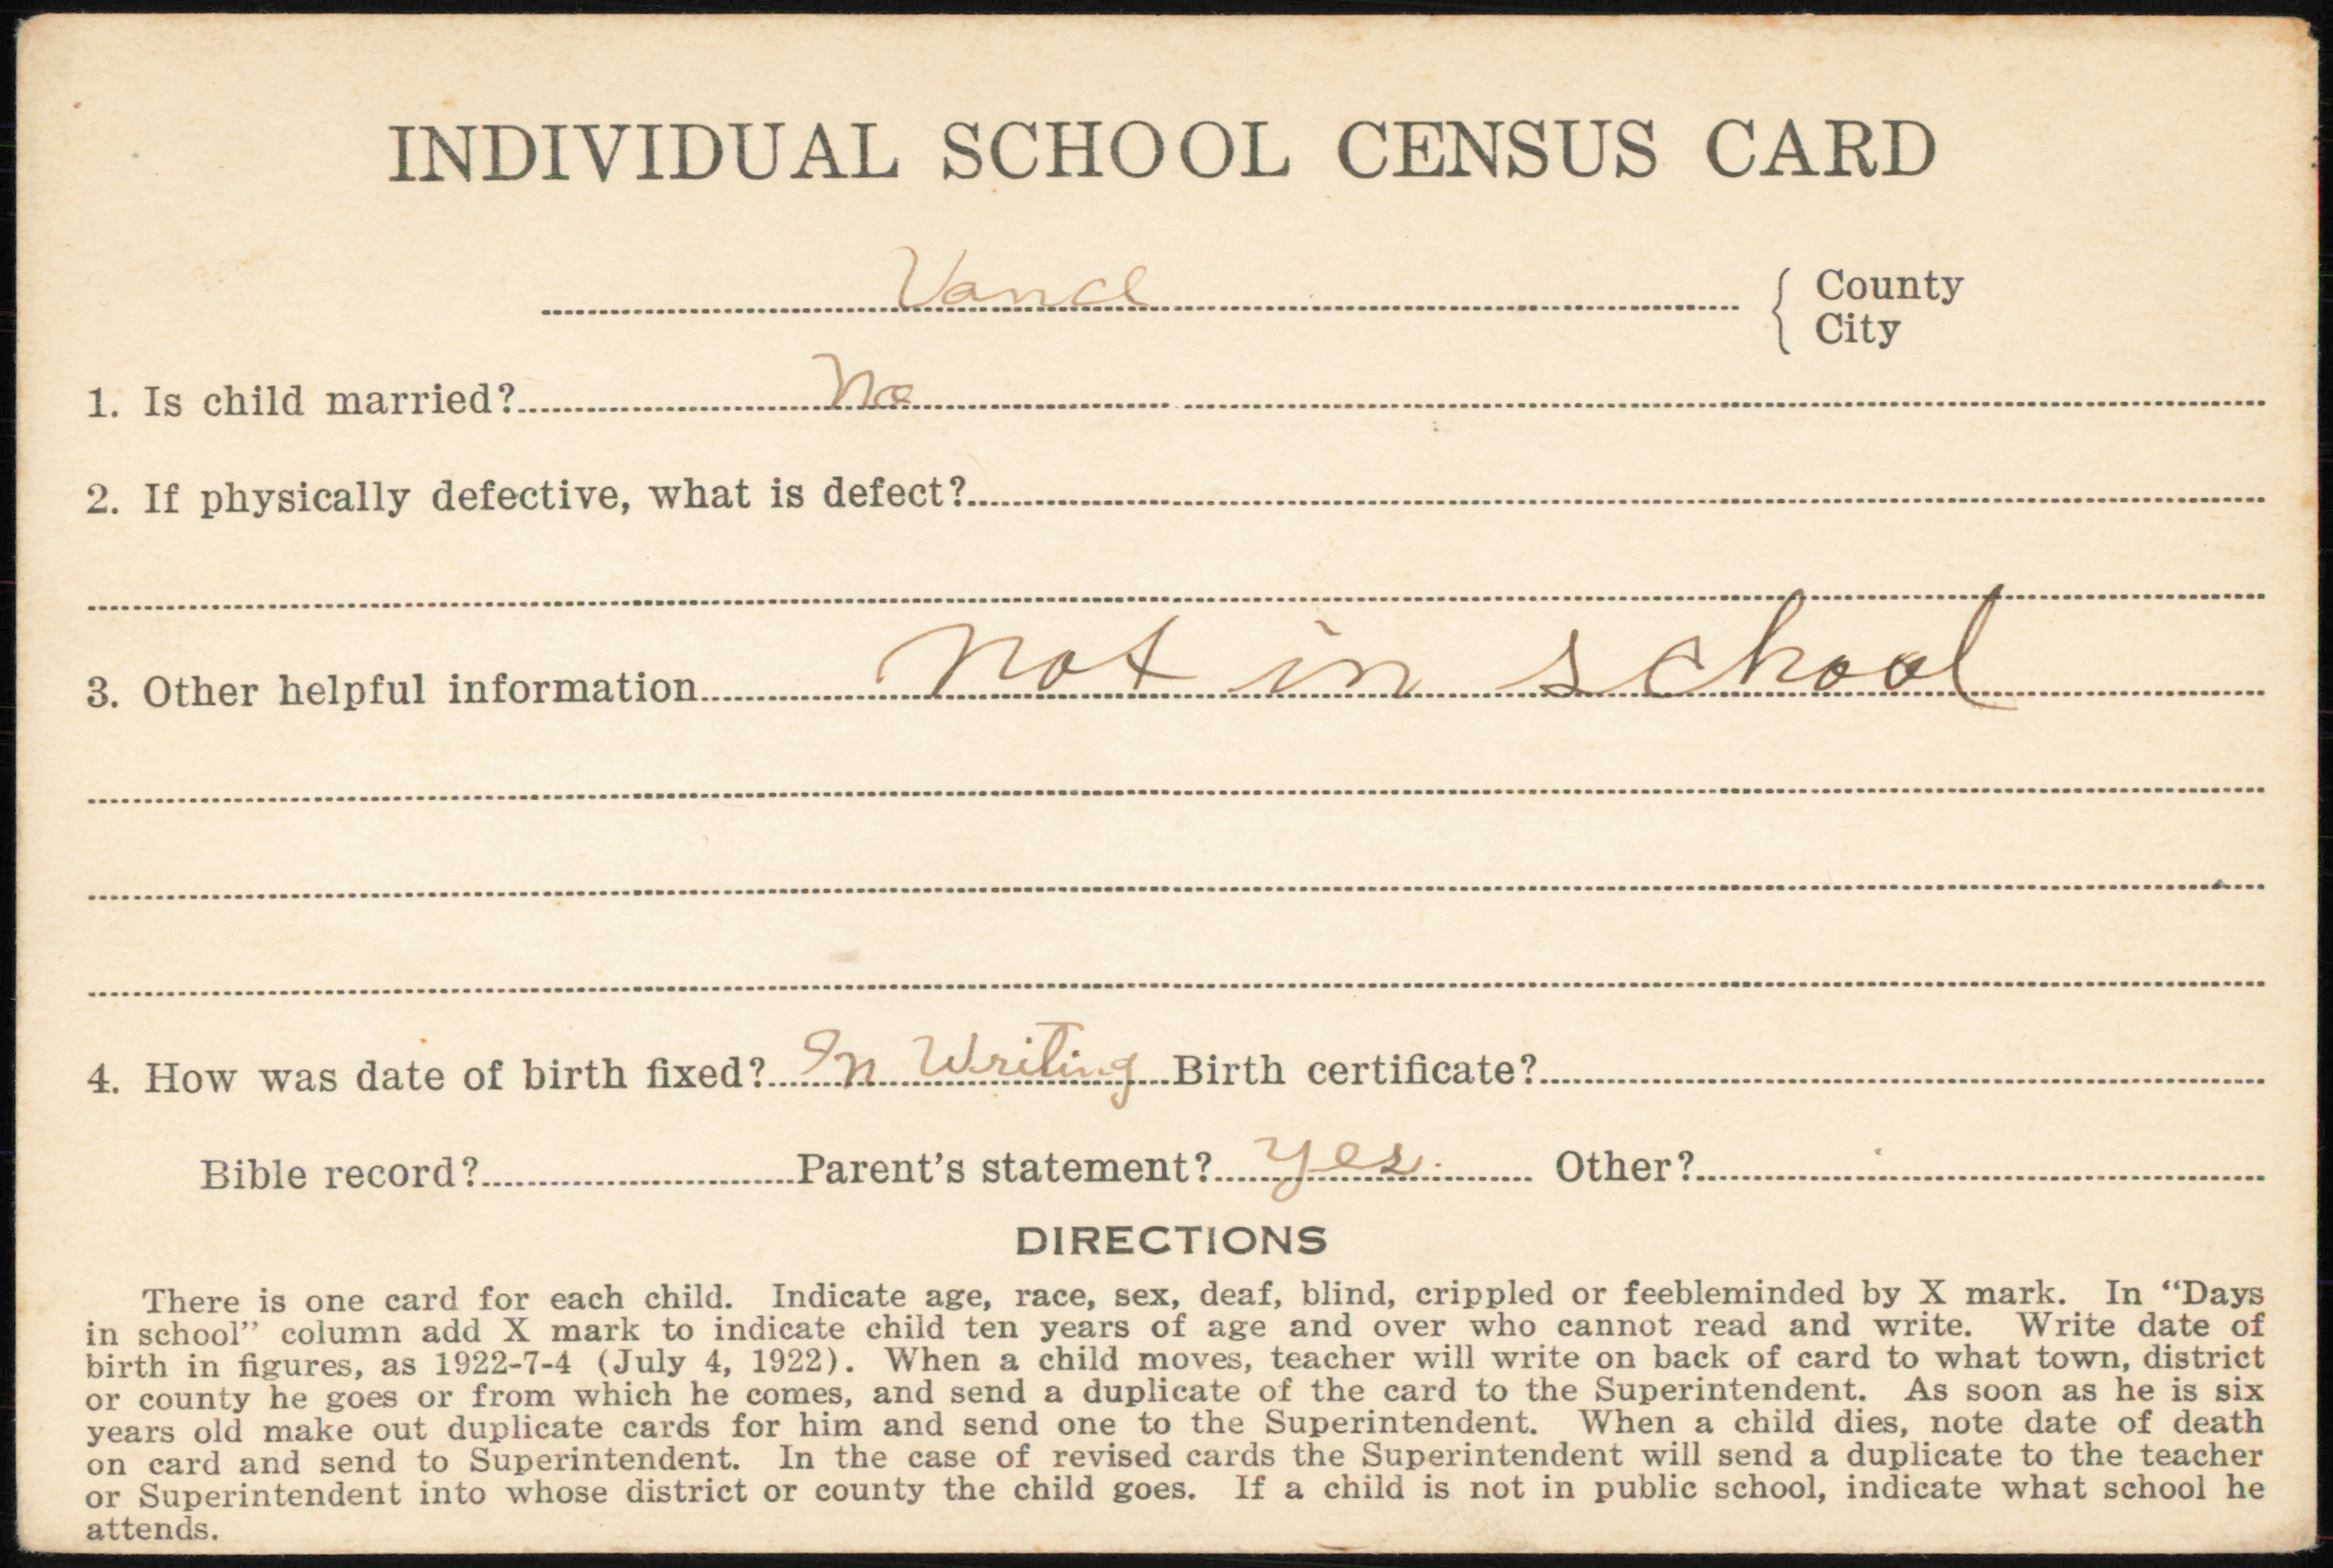 INDIVIDUAL SCHOOL CENSUS CARD
Vance { County
City
1. Is child married? No
2. If physically defective, what is defect?
3. Other helpful information not in school
4. How was date of birth fixed? In Writing Birth certificate?
Bible record? Parent's statement? yes. Other?
DIRECTIONS
There is one card for each child. Indicate age, race, sex, deaf, blind, crippled or feebleminded by X mark. In “Days
in school” column add X mark to indicate child ten years of age and over who cannot read and write. Write date of
birth in figures, as 1922-7-4 (July 4, 1922). When a child moves, teacher will write on back of card to what town, district
or county he goes or from which he comes, and send a duplicate of the card to the Superintendent. As soon as he is six
years old make out duplicate cards for him and send one to the Superintendent. When a child dies, note date of death
on card and send to Superintendent. In the case of revised cards the Superintendent will send a duplicate to the teacher
or Superintendent into whose district or county the child goes. If a child is not in public school, indicate what school he
attends.